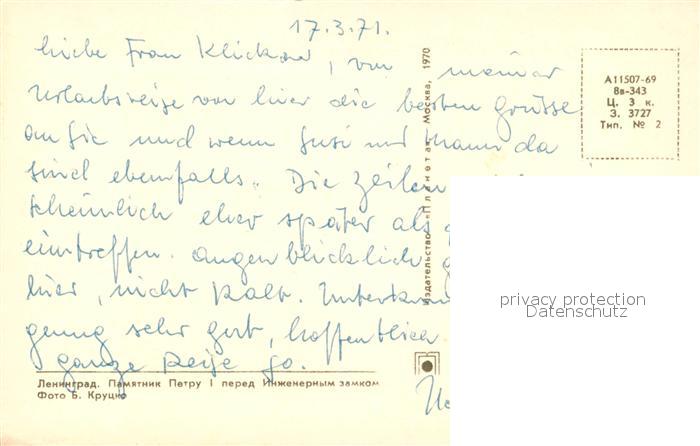 17.3.71.
liebe Frau Klickow, von meiner
Urlaubsreise von hier die besten Grüsse
an Sie und wenn Susi und Mann da
sind ebenfalls. Die Zeilen
scheinlich eher später als
eintreffen. Augenblicklich
hier, nicht kalt.
gung sehr gut, hoffentlich
ganze Reise so.
Ленинград. Памятник Петру I перед Инженерным замком
Фото Б. Круцко
Издательство «Планета», Москва, 1970
А11507-69
8в-343
Ц. 3 к.
З. 3727
Тип. № 2
privacy protection
Datenschutz